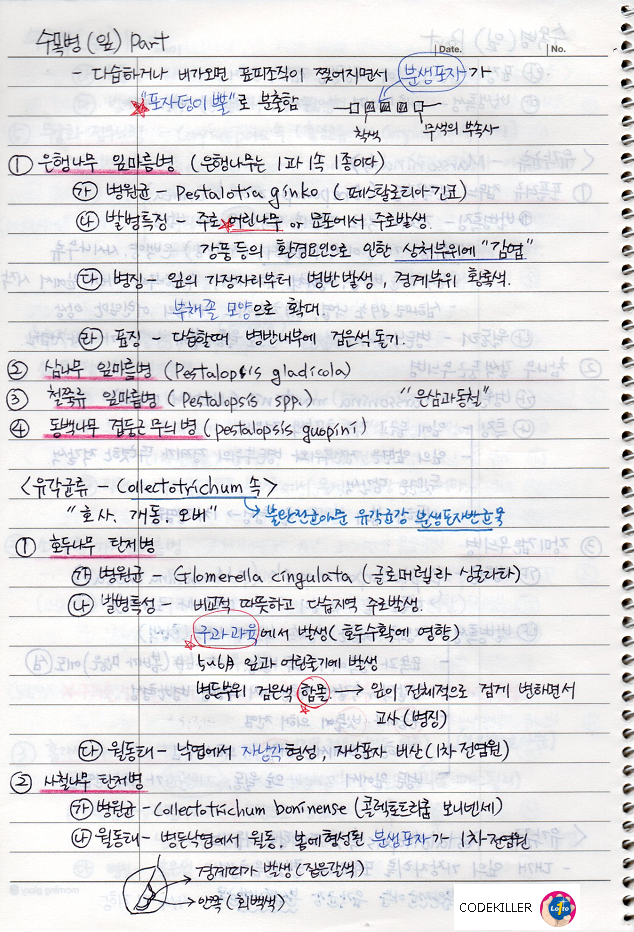 수목병 (잎) Part
Date.
No.
- 다습하거나 비가오면 표피조직이 찢어지면서 분생포자가
"포자덩이뿔"로 분출함
착색
무색의 부속사
① 은행나무 잎마름병 (은행나무는 1과 1속 1종이다)
㉮ 병원균 - Pestalotia ginko (페스탈로티아 긴코)
㉯ 발병특징 - 주로 어린나무 or 묘포에서 주로발생.
강풍등의 환경요인으로 인한 상처부위에 "감염"
㉰ 병징 - 잎의 가장자리부터 병반발생, 경계부위 황록색.
부채꼴 모양으로 확대.
㉱ 표징 - 다습할때 병반내부에 검은색 돌기.
② 삼나무 잎마름병 (Pestalopsis gladicola)
③ 철쭉류 잎마름병 (Pestalopsis spp.) "은삼과동철"
④ 동백나무 겹둥근무늬병 (pestalopsis guepini)
<유각균류 - Collectotrichum 속>
"호사. 개동. 오버"
불완전균아문 유각균강 분생포자반균목
① 호두나무 탄저병
㉮ 병원균 - Glomerella cingulata (글로머렐라 싱굴라타)
㉯ 발병특성 - 비교적 따뜻하고 다습지역 주로발생.
주과과육에서 발생(호두수확에 영향)
5~6月 잎과 어린줄기에 발생
병든부위 검은색 함몰 → 잎이 전체적으로 검게 변하면서
고사(병징)
㉰ 월동태 - 낙엽에서 자낭각형성, 자낭포자 비산(1차전염원)
② 사철나무 탄저병
㉮ 병원균 - Collectotrichum boninense (콜렉토트리쿰 보니넨세)
㉯ 월동태 - 병든낙엽에서 월동, 봄에형성된 분생포자가 1차전염원
경계띠가 발생 (짙은갈색)
안쪽 (회백색)
CODEKILLER
Lotto